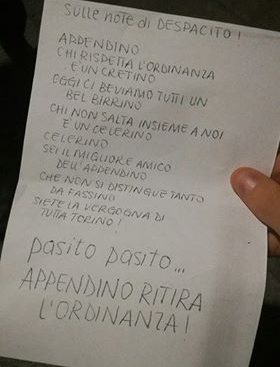 SULLE NOTE DI DESPACITO!
APPENDINO
CHI RISPETTA L'ORDINANZA
È UN CRETINO
OGGI CI BEVIAMO TUTTI UN
BEL BIRRINO
CHI NON SALTA INSIEME A NOI
È UN CELERINO
CELERINO
SEI IL MIGLIORE AMICO
DELL'APPENDINO
CHE NON SI DISTINGUE TANTO
DA FASSINO
SIETE LA VERGOGNA DI
TUTTA TORINO!
pasito pasito...
APPENDINO RITIRA
L'ORDINANZA!